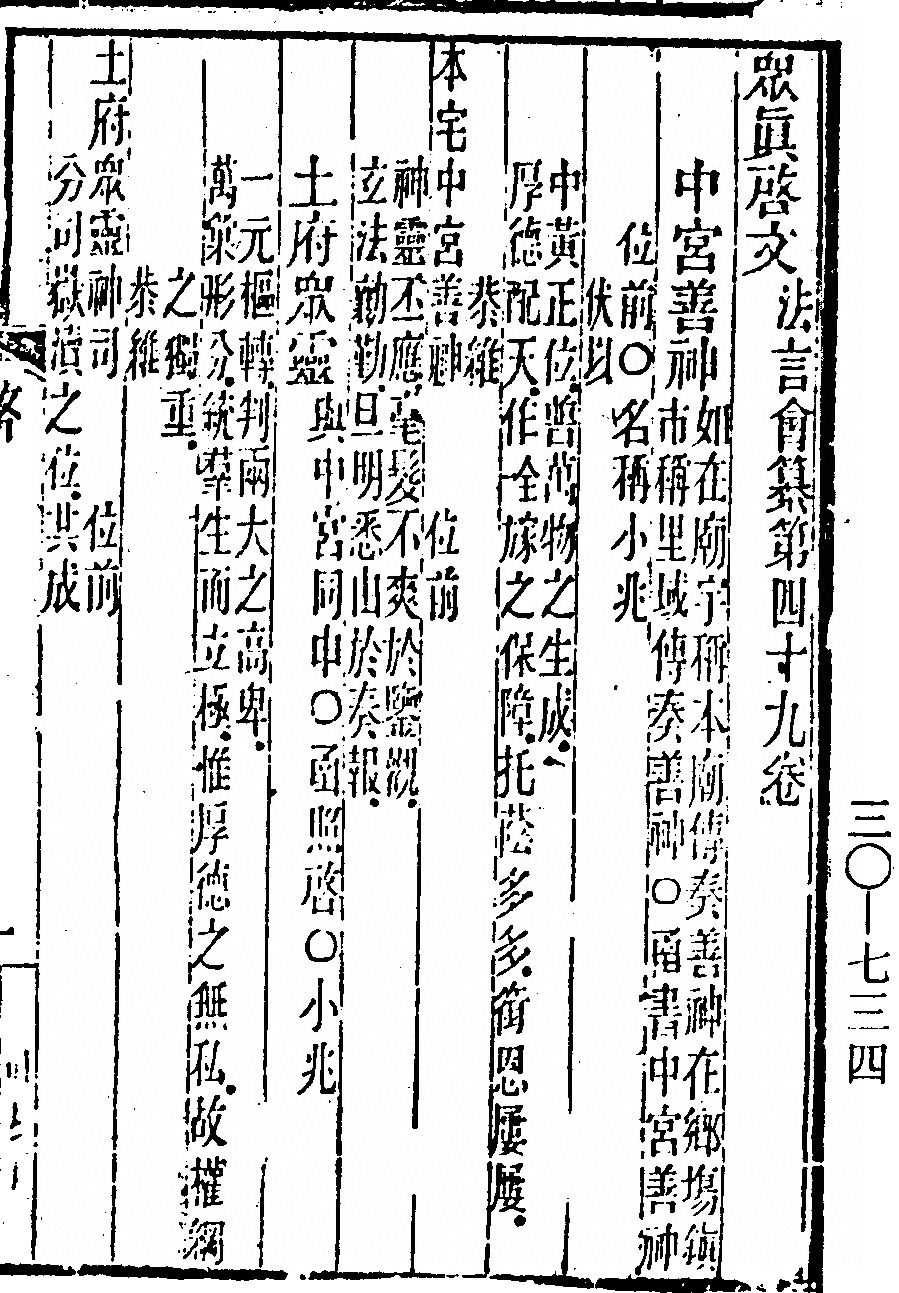 法言會纂第四十九卷
眾眞啓文
中宮善神如在廟宇稱本廟傳奏善神在鄉塲鎮
市稱里域傳奏善神〇函書中宮善神
位前〇名稱小兆
伏以
中黃正位普萬物之生成
厚德配天作全家之保障托蔭多多銜恩屢屢
恭維
本宅中宮善神　位前
神靈丕應毫髮不爽於鑒觀
玄法勤勤旦明悉由於奏報
土府眾靈與中宮同申〇函照啓〇小兆
一元樞轉判兩大之高卑
萬彙形分統羣生而立極惟厚德之無私故權綱
之獨重
恭維
土府眾靈神司　位前
分司嶽瀆之位共成
三〇—七三四